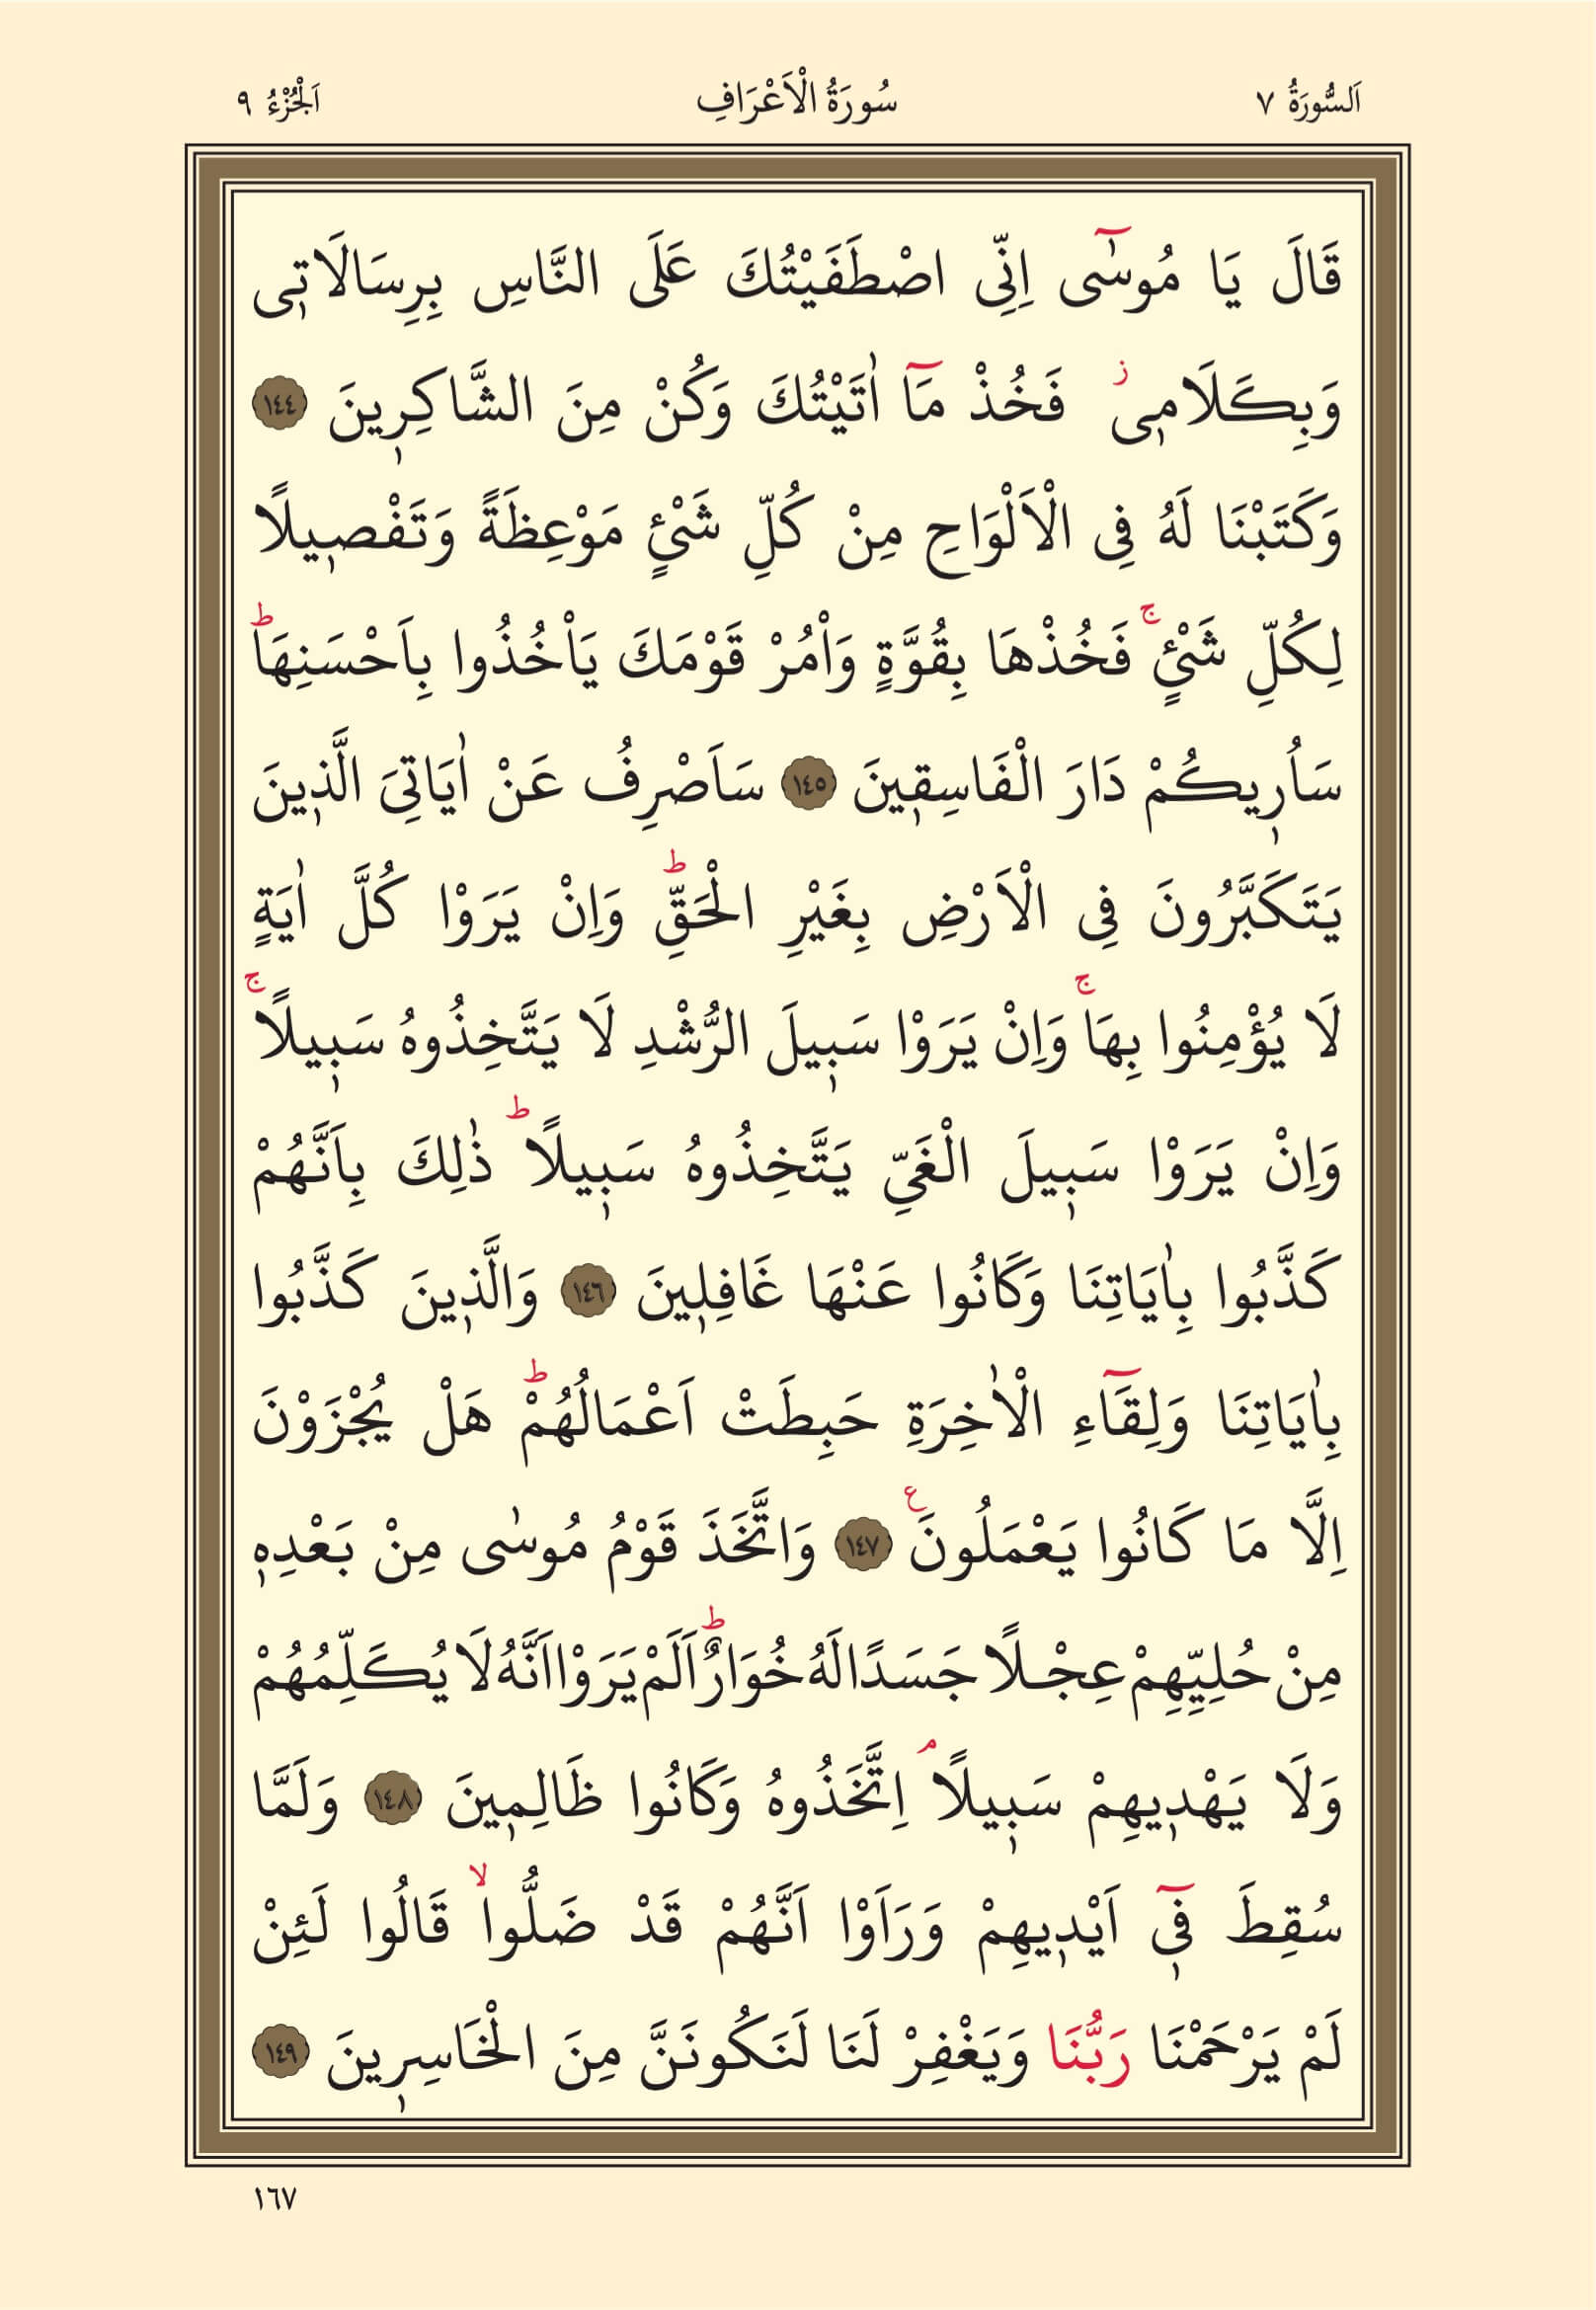 اَلسُّورَةُ ٧ سُورَةُ الْاَعْرَافِ اَلْجُزْءُ ٩
قَالَ يَا مُوسٰٓى اِنِّى اصْطَفَيْتُكَ عَلَى النَّاسِ بِرِسَالَاتٖى
وَبِكَلَامٖىۘ فَخُذْ مَٓا اٰتَيْتُكَ وَكُنْ مِنَ الشَّاكِرٖينَ ﴿١٤٤﴾
وَكَتَبْنَا لَهُ فِى الْاَلْوَاحِ مِنْ كُلِّ شَىْءٍ مَوْعِظَةً وَتَفْصٖيلًا
لِكُلِّ شَىْءٍۚ فَخُذْهَا بِقُوَّةٍ وَاْمُرْ قَوْمَكَ يَاْخُذُوا بِاَحْسَنِهَاؕ
سَاُرٖيكُمْ دَارَ الْفَاسِقٖينَ ﴿١٤٥﴾ سَاَصْرِفُ عَنْ اٰيَاتِىَ الَّذٖينَ
يَتَكَبَّرُونَ فِى الْاَرْضِ بِغَيْرِ الْحَقِّؕ وَاِنْ يَرَوْا كُلَّ اٰيَةٍ
لَا يُؤْمِنُوا بِهَاۚ وَاِنْ يَرَوْا سَبٖيلَ الرُّشْدِ لَا يَتَّخِذُوهُ سَبٖيلًاۚ
وَاِنْ يَرَوْا سَبٖيلَ الْغَىِّ يَتَّخِذُوهُ سَبٖيلًاؕ ذٰلِكَ بِاَنَّهُمْ
كَذَّبُوا بِاٰيَاتِنَا وَكَانُوا عَنْهَا غَافِلٖينَ ﴿١٤٦﴾ وَالَّذٖينَ كَذَّبُوا
بِاٰيَاتِنَا وَلِقَٓاءِ الْاٰخِرَةِ حَبِطَتْ اَعْمَالُهُمْؕ هَلْ يُجْزَوْنَ
اِلَّا مَا كَانُوا يَعْمَلُونَ ع ﴿١٤٧﴾ وَاتَّخَذَ قَوْمُ مُوسٰى مِنْ بَعْدِهٖ
مِنْ حُلِيِّهِمْ عِجْلًا جَسَدًا لَهُ خُوَارٌؕ اَلَمْ يَرَوْا اَنَّهُ لَا يُكَلِّمُهُمْ
وَلَا يَهْدٖيهِمْ سَبٖيلًاۘ اِتَّخَذُوهُ وَكَانُوا ظَالِمٖينَ ﴿١٤٨﴾ وَلَمَّا
سُقِطَ فٖٓى اَيْدٖيهِمْ وَرَاَوْا اَنَّهُمْ قَدْ ضَلُّواۙ قَالُوا لَئِنْ
لَمْ يَرْحَمْنَا رَبُّنَا وَيَغْفِرْ لَنَا لَنَكُونَنَّ مِنَ الْخَاسِرٖينَ ﴿١٤٩﴾
١٦٧